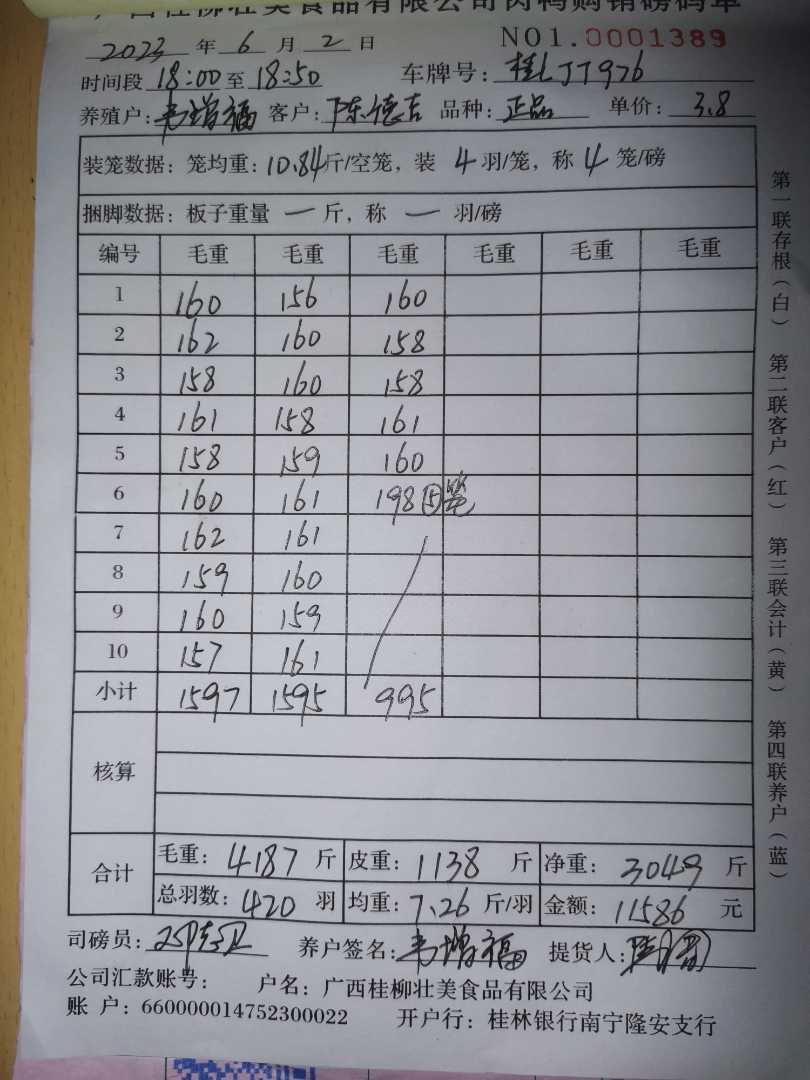 广西桂柳壮美食品有限公司肉鸭购销磅码单
2023 年 6 月 2 日 NO1.0001389
时间段 18:00 至 18:50 车牌号: 桂LJT976
养殖户: 韦增福 客户: 陈德吉 品种: 正品 单价: 3.8
装笼数据: 笼均重: 10.84斤/空笼, 装 4 羽/笼, 称 4 笼/磅
捆脚数据: 板子重量 一 斤, 称 一 羽/磅
编号 毛重 毛重 毛重 毛重 毛重 毛重
1 160 156 160
2 162 160 158
3 158 160 158
4 161 158 161
5 158 159 160
6 160 161 198 ⑤笼
7 162 161
8 159 160
9 160 159
10 157 161
小计 1597 1595 995
核算
合计 毛重: 4187 斤 皮重: 1138 斤 净重: 3049 斤
总羽数: 420 羽 均重: 7.26 斤/羽 金额: 11586 元
司磅员: 养户签名: 韦增福 提货人:
公司汇款账号: 户名: 广西桂柳壮美食品有限公司
账 户: 660000014752300022 开户行: 桂林银行南宁隆安支行
第一联存根(白) 第二联客户(红) 第三联会计(黄) 第四联养户(蓝)